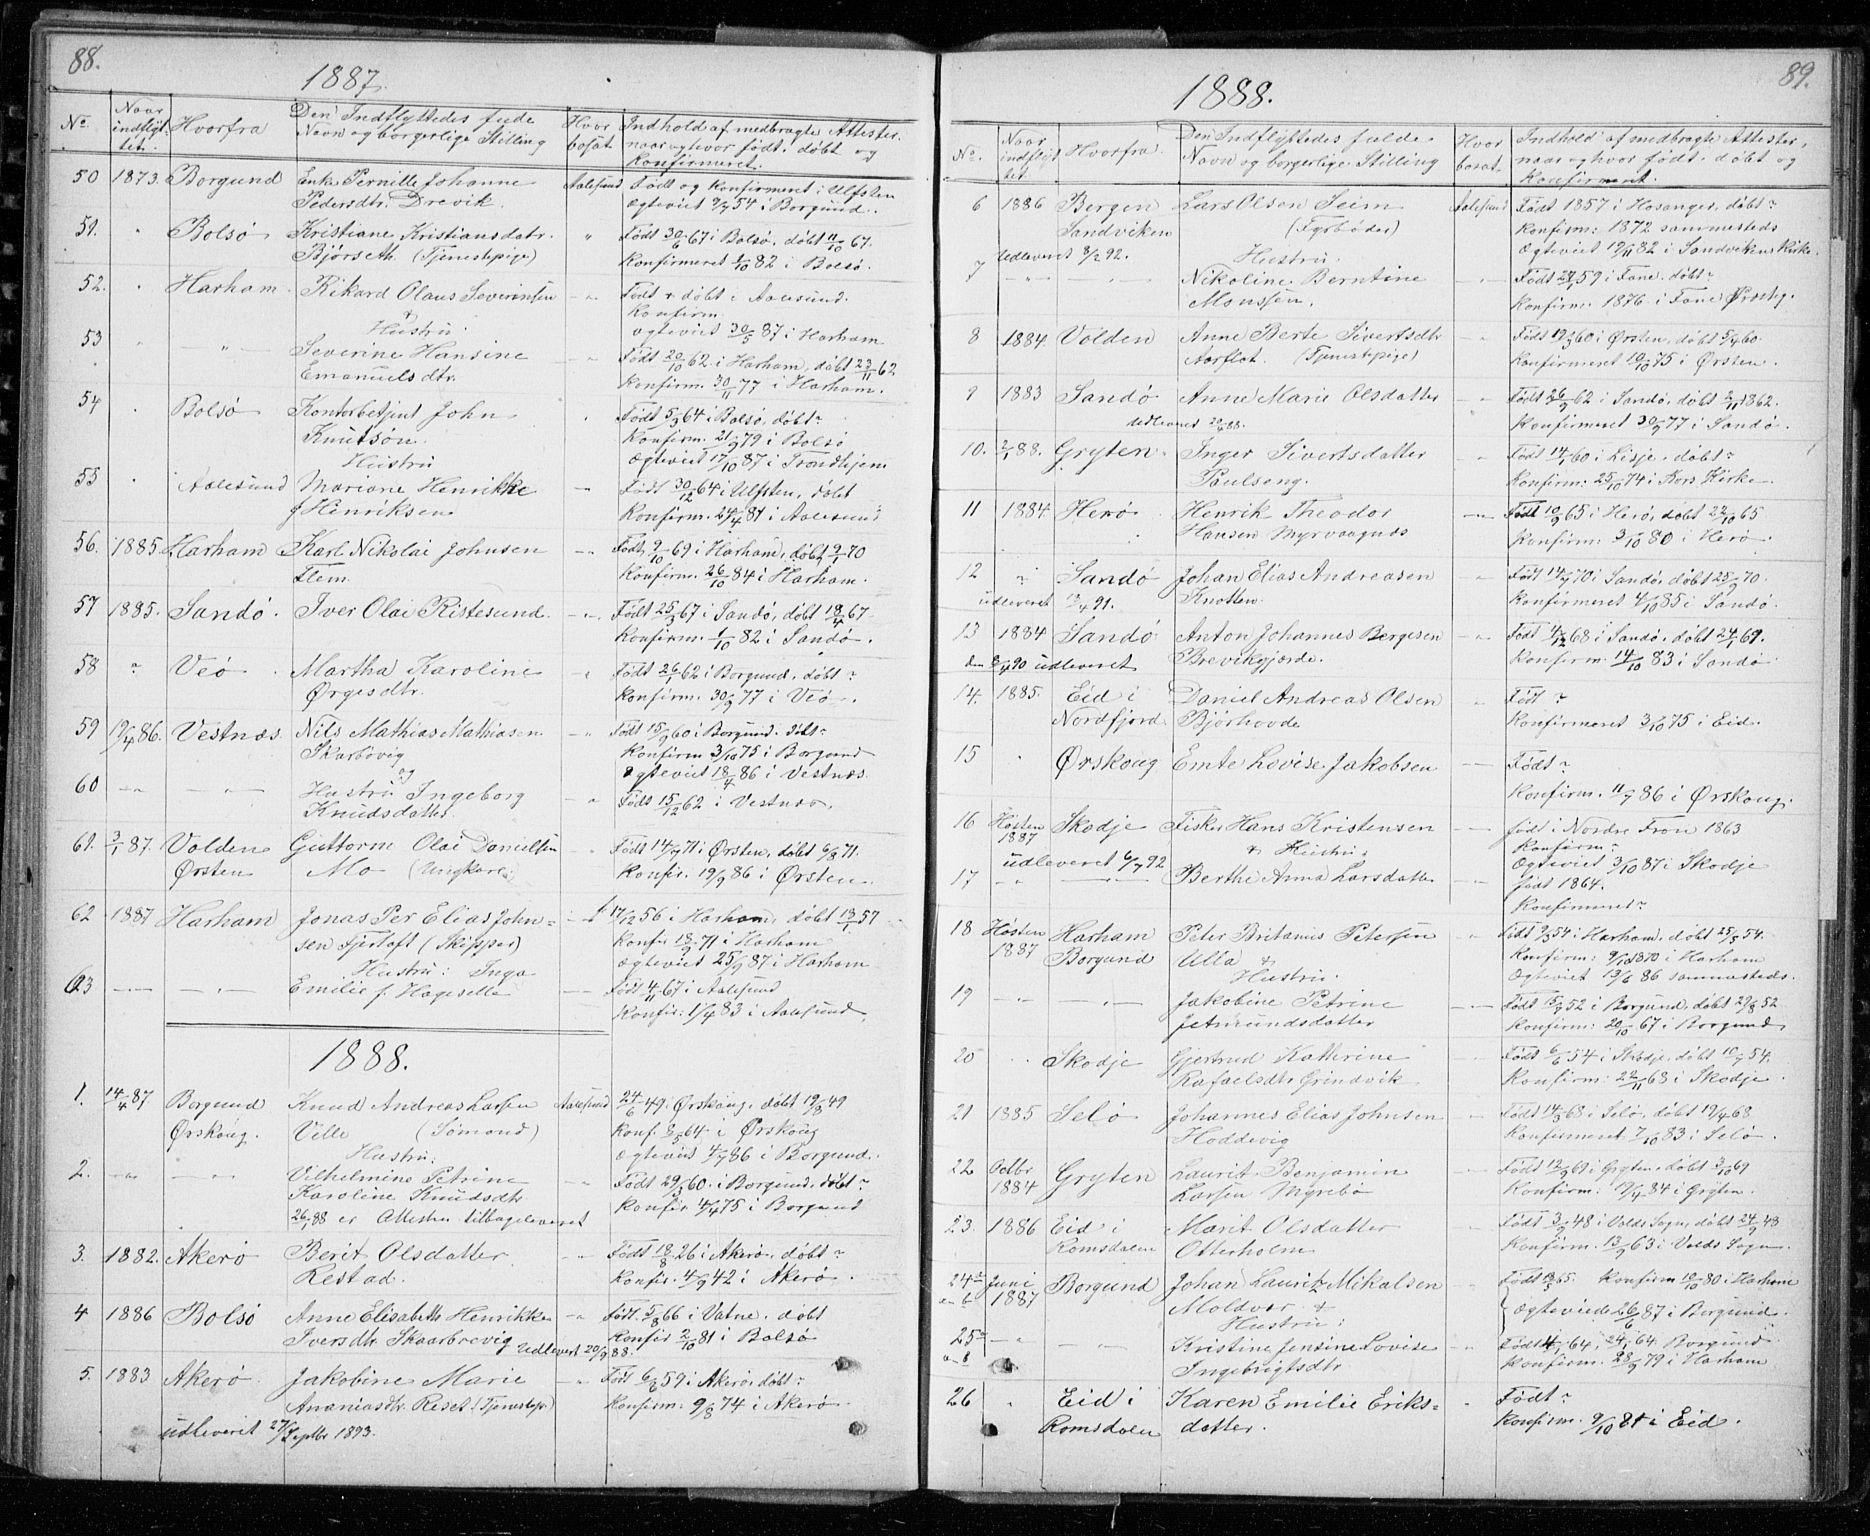 88.
1887.
No. Naar indflyttet. Hvorfra Den Indflyttedes fulde Navn og borgerlige Stilling Hvor bosat. Indhold af medbragte Attester, naar og hvor født, døbt og Konfirmeret.
50 1873. Borgund Enke Pernille Johanne Aalesund Født og Konfirmeret i Ulfsten
Pedersdtr. Drevik. Ægteviet 54 i Borgund.
51. " Bolsø Kristiane Kristiansdatr. " Født 30/6 67 i Bolsø, døbt 11/10 67.
Bjørseth (Tjenestepige) Konfirmeret 1/10 82 i Bolsø.
52. " Harham Rikard Olaus Severinsen -"- Født & døbt i Aalesund.
& Konfirm.
Hustru. Ægteviet 30/5 87 i Harham
53 " -"- Severine Hansine -"- Født 20/10 62 i Harham, døbt 23/11 62
Emanuelsdtr. Konfirm. 30/11 77 i Harham.
54 " Bolsø Kontorbetjent John " Født 5/3 64 i Bolsø, døbt ?
Knutsøn. Konfirm. 21/9 79 i Bolsø
Hustru Ægteviet 17/10 87 i Trondhjem
55 " Aalesund Mariane Henrikke — Født 30/12 64 i Ulfsten, døbt
f Henriksen Konfirm. 24/4 81 i Aalesund
56. 1885. Harham Karl Nikolai Johnsen -"- Født 9/10 69 i Harham, døbt 9/1 70
Flem. Konfirm. 26/10 84 i Harham.
57 1885. Sandø. Iver Olai Ristesund -"- Født 25/3 67 i Sandø, døbt 18/4 67
Konfirm. 1/10 82 i Sandø.
58 " Veø Martha Karoline " Født 26/1 62 i Borgund, døbt ?
Ørgesdtr. Konfirm. 30/9 77 i Veø.
59 19/4 86. Vestnæs. Nils Mathias Mathiasen " Født 15/9 60 i Borgund. døbt ?
Skarbøvig Konfirm 3/10 75 i Borgund
og Ægteviet 18/4 86 i Vestnæs
60 -"- -"- Hustru Ingeborg -"- Født 15/12 62 i Vestnæs.
Knudsdatter.
61. 3/1 87. Volden Guttorm Olai Danielsen -"- Født 14/7 71 i Ørsten, døbt 6/8 71.
Ørsten Mo (Ungkarl) Konfir. 19/9 86 i Ørsten.
62 1887 Harham Jonas Per Elias John= -"- f 17/12 56 i Harham, døbt 13/1 57
sen Fjørtoft (Skipper) Konfir 18/9 71 i Harham
Hustru: Inga Ægteviet 25/9 87 i Harham
63 -"- -"- Emilie f. Hageselle — Født 4/11 67 i Aalesund
Konfir: 1/4 83 i Aalesund.
1888.
1. 14/4 87 Borgund Knud Andreas Larsen Aalesund 24/6 49 i Ørskoug, døbt 19/8 49
Ørskoug. Velle (Sømand) Konf. 64 i Ørskoug
Hustru: Ægteviet 4/7 86 i Borgund.
2. -"- -"- Vilhelmine Petrine -"- Født 29/3 60. i Borgund, døbt ?
Karoline Knudsdtr Konfir 4/4 75 i Borgund
26/1 88 er Attesten tilbageleveret
3. 1882. Akerø Berit Olsdatter -"- Født 18/8 26 i Akerø. døbt ?
Restad. Konfir. 4/9 42 i Akerø.
4 1886 Bolsø Anne Elisabeth Henrikke -"- Født. 5/8 66 i Vatne. døbt
Iversdtr Skaarbrevig Konfir 2/10 81 i Bolsø
Udlevert 20/9 88.
5. 1883 Akerø. Jakobine Marie -"- Født 6/6 59 i Akerø, døbt ?
Ananiasdtr. Reset (Tjenestep.) Konfirm. 9/8 74 i Akerø.
udleveret 27/ Septbr 1893.
89.
1888.
No. Naar indflyttet. Hvorfra. Den Indflyttedes fulde Navn og borgerlige Stilling Hvor bosat. Indhold af medbragte Attester, naar og hvor født, døbt og Konfirmeret.
6 1886 Bergen Lars Olsen Seim Aalesund Født 1857 i Hosanger, døbt ?
Sandviken (Fyrbøder) Konfirm: 1872 sammesteds
Udleveret 8/2 92. Hustru Ægteviet 19/11 82 i Sandvikens Kirke.
7 -"- " Nikoline Berntine -"- Født 59 i Fane. døbt ?
Monssen. Konfirm: 1876 i Fane Præstg.
8 1884 Volden Anne Berte Sivertsdtr -"- Født 19/3 60 i Ørsten, døbt 60.
Aarflot. (Tjenestepige) Konfirmeret 10/10 75 i Ørsten.
9 1883 Sandø Anne Marie Olsdatter -"- Født 26/9 62 i Sandø, døbt 2/11 1862.
Udleveret 20/4 88. Konfirmeret 30/9 77 i Sandø.
10. 2/1 88. Gryten Inger Sivertsdatter " Født 14/1 60 i Lesje, døbt ?
Paulseng. Konfirm: 25/10 74 i Kors Kirke
11 1884 Herø Henrik Theodor -"- Født 10/9 65 i Herø, døbt 22/10 65
Hansen Myrvaagnæs Konfirm: 3/10 80 i Herø.
12 " Sandø Johan Elias Andreasen " Født 14/7 70 i Sandø, døbt 25/9 70.
udleveret 13/4 91. Knotten Konfirmeret 4/10 85 i Sandø.
13 1884 Sandø Anton Johannes Bergesen -"- Født 4/12 68 i Sandø, døbt 24/1 69.
den 8/4 90 udleveret Brevikgjærde. Konfirm. 14/10 83 i Sandø
14. 1885. Eid i Daniel Andreas Olsen " Født ?
Nordfjord Bjørhovde Konfirmeret 3/10 75 i Eid.
15 " Ørskoug Emte Lovise Jakobsen -"- Født ?
Konfirm. 11/7 86 i Ørskoug.
16 Høsten Skodje Fisker Hans Kristensen -"- født i Nordre Fron 1863
1887 & Hustru: Konfirm: ?
udleveret 6/7 92 Ægteviet 3/10 87 i Skodje
17 -"- -"- Berthe Anna Larsdatter -"- født 1864.
Konfirmeret ?
18 Høsten Harham Peter Britanus Petersen " Født 9/3 54 i Harham, døbt 25/3 54.
1887 Borgund Ulla & Konfirm: 9/10 1870 i Harham
Hustru. Ægteviet 13/6 86 sammesteds.
19 -"- " Jakobine Petrine -"- Født 15/7 52 i Borgund, døbt 29/8 52
Jetmundsdatter Konfirm: 20/10 67 i Borgund
20 " Skodje Gjertrud Katherine -"- Født 6/6 54 i Skodje, døbt 10/9 54.
Rafaelsdtr Grindvik Konfirm: 22/11 68 i Skodje.
21 1885 Selø Johannes Elias Johnsen -"- Født 14/3 68 i Selø, døbt 19/4 68
Hoddevig Konfirmeret 7/10 83 i Selø.
22 Octbr Gryten Laurits Benjamin -"- Født 12/9 69 i Gryten, døbt 3/10 69
1884 Larsen Myrebø Konfirm: 19/4 84 i Gryten.
23. 1886 Eid i Marit Olsdatter -"- Født 3/9 48 i Volds Sogn, døbt 24/9 48
Romsdalen Otterholm Konfirm. 13/9 63 i Volds Sogn.
24 Juni Borgund Johan Lauritz Mikalsen -"- Født 65. Konfirm 10/10 80 i Harham
1887 Moldvær & Ægteviede 26/6 87 i Borgund.
Hustru:
25 -"- -"- Kristine Jensine Lovise -"- Født 4/1 64, 24/1 64. Borgund
Ingebrigtsdtr Konfirm. 28/9 79 i Harham
26 " Eid i Karen Emilie Eriks= " Født ?
Romsdalen datter. Konfirm. 9/10 81 i Eid.